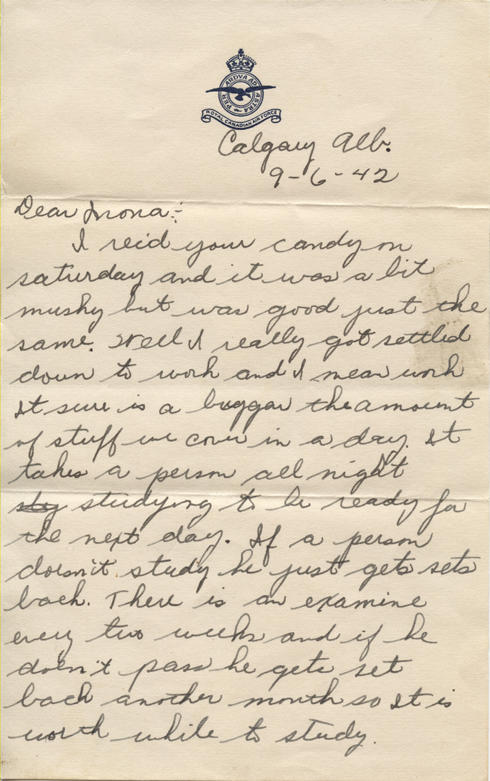 PER ARDVA AD ASTRA
ROYAL CANADIAN AIR FORCE
Calgary Alb.
9-6-42
Dear Mona:-
I rec'd your candy on
saturday and it was a bit
mushy but was good just the
same. Well I really got settled
down to work and I mean work
It sure is a buggar the amount
of stuff we cover in a day. It
takes a person all night
sty studying to be ready for
the next day. If a person
doesn't study he just gets sets
back. There is an examine
every two weeks and if he
doesn't pass he gets set
back another month so It is
worth while to study.